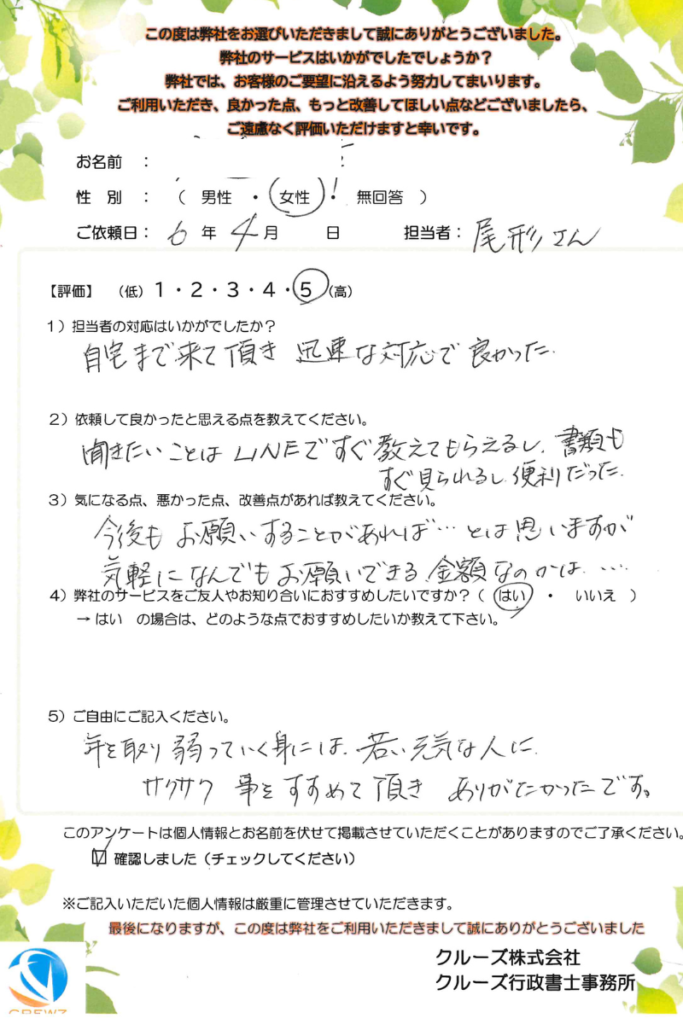 この度は弊社をお選びいただきまして誠にありがとうございました。
弊社のサービスはいかがでしたでしょうか？
弊社では、お客様のご要望に沿えるよう努力してまいります。
ご利用いただき、良かった点、もっと改善してほしい点などございましたら、
ご遠慮なく評価いただけますと幸いです。
お名前 ：
性 別 ： （ 男性 ・ 女性 ・ 無回答 ）
ご依頼日： 6 年 4 月 日 担当者： 尾形さん
【評価】 （低）1・2・3・4・5（高）
1）担当者の対応はいかがでしたか？
自宅まで来て頂き 迅速な対応で良かった.
2）依頼して良かったと思える点を教えてください。
聞きたいことは LINEですぐ教えてもらえるし、書類も
すぐ見られるし、便利だった.
3）気になる点、悪かった点、改善点があれば教えてください。
今後も お願いすることがあれば…とは思いますが
気軽になんでもお願いできる金額なのかは….
4）弊社のサービスをご友人やお知り合いにおすすめしたいですか？（ はい ・ いいえ ）
→ はい の場合は、どのような点でおすすめしたいか教えて下さい。
5）ご自由にご記入ください。
年を取り 弱っていく身には、若い元気な人に
サクサク 事をすすめて頂き ありがたかったです。
このアンケートは個人情報とお名前を伏せて掲載させていただくことがありますのでご了承ください。
☑ 確認しました（チェックしてください）
※ご記入いただいた個人情報は厳重に管理させていただきます。
最後になりますが、この度は弊社をご利用いただきまして誠にありがとうございました
クルーズ株式会社
クルーズ行政書士事務所